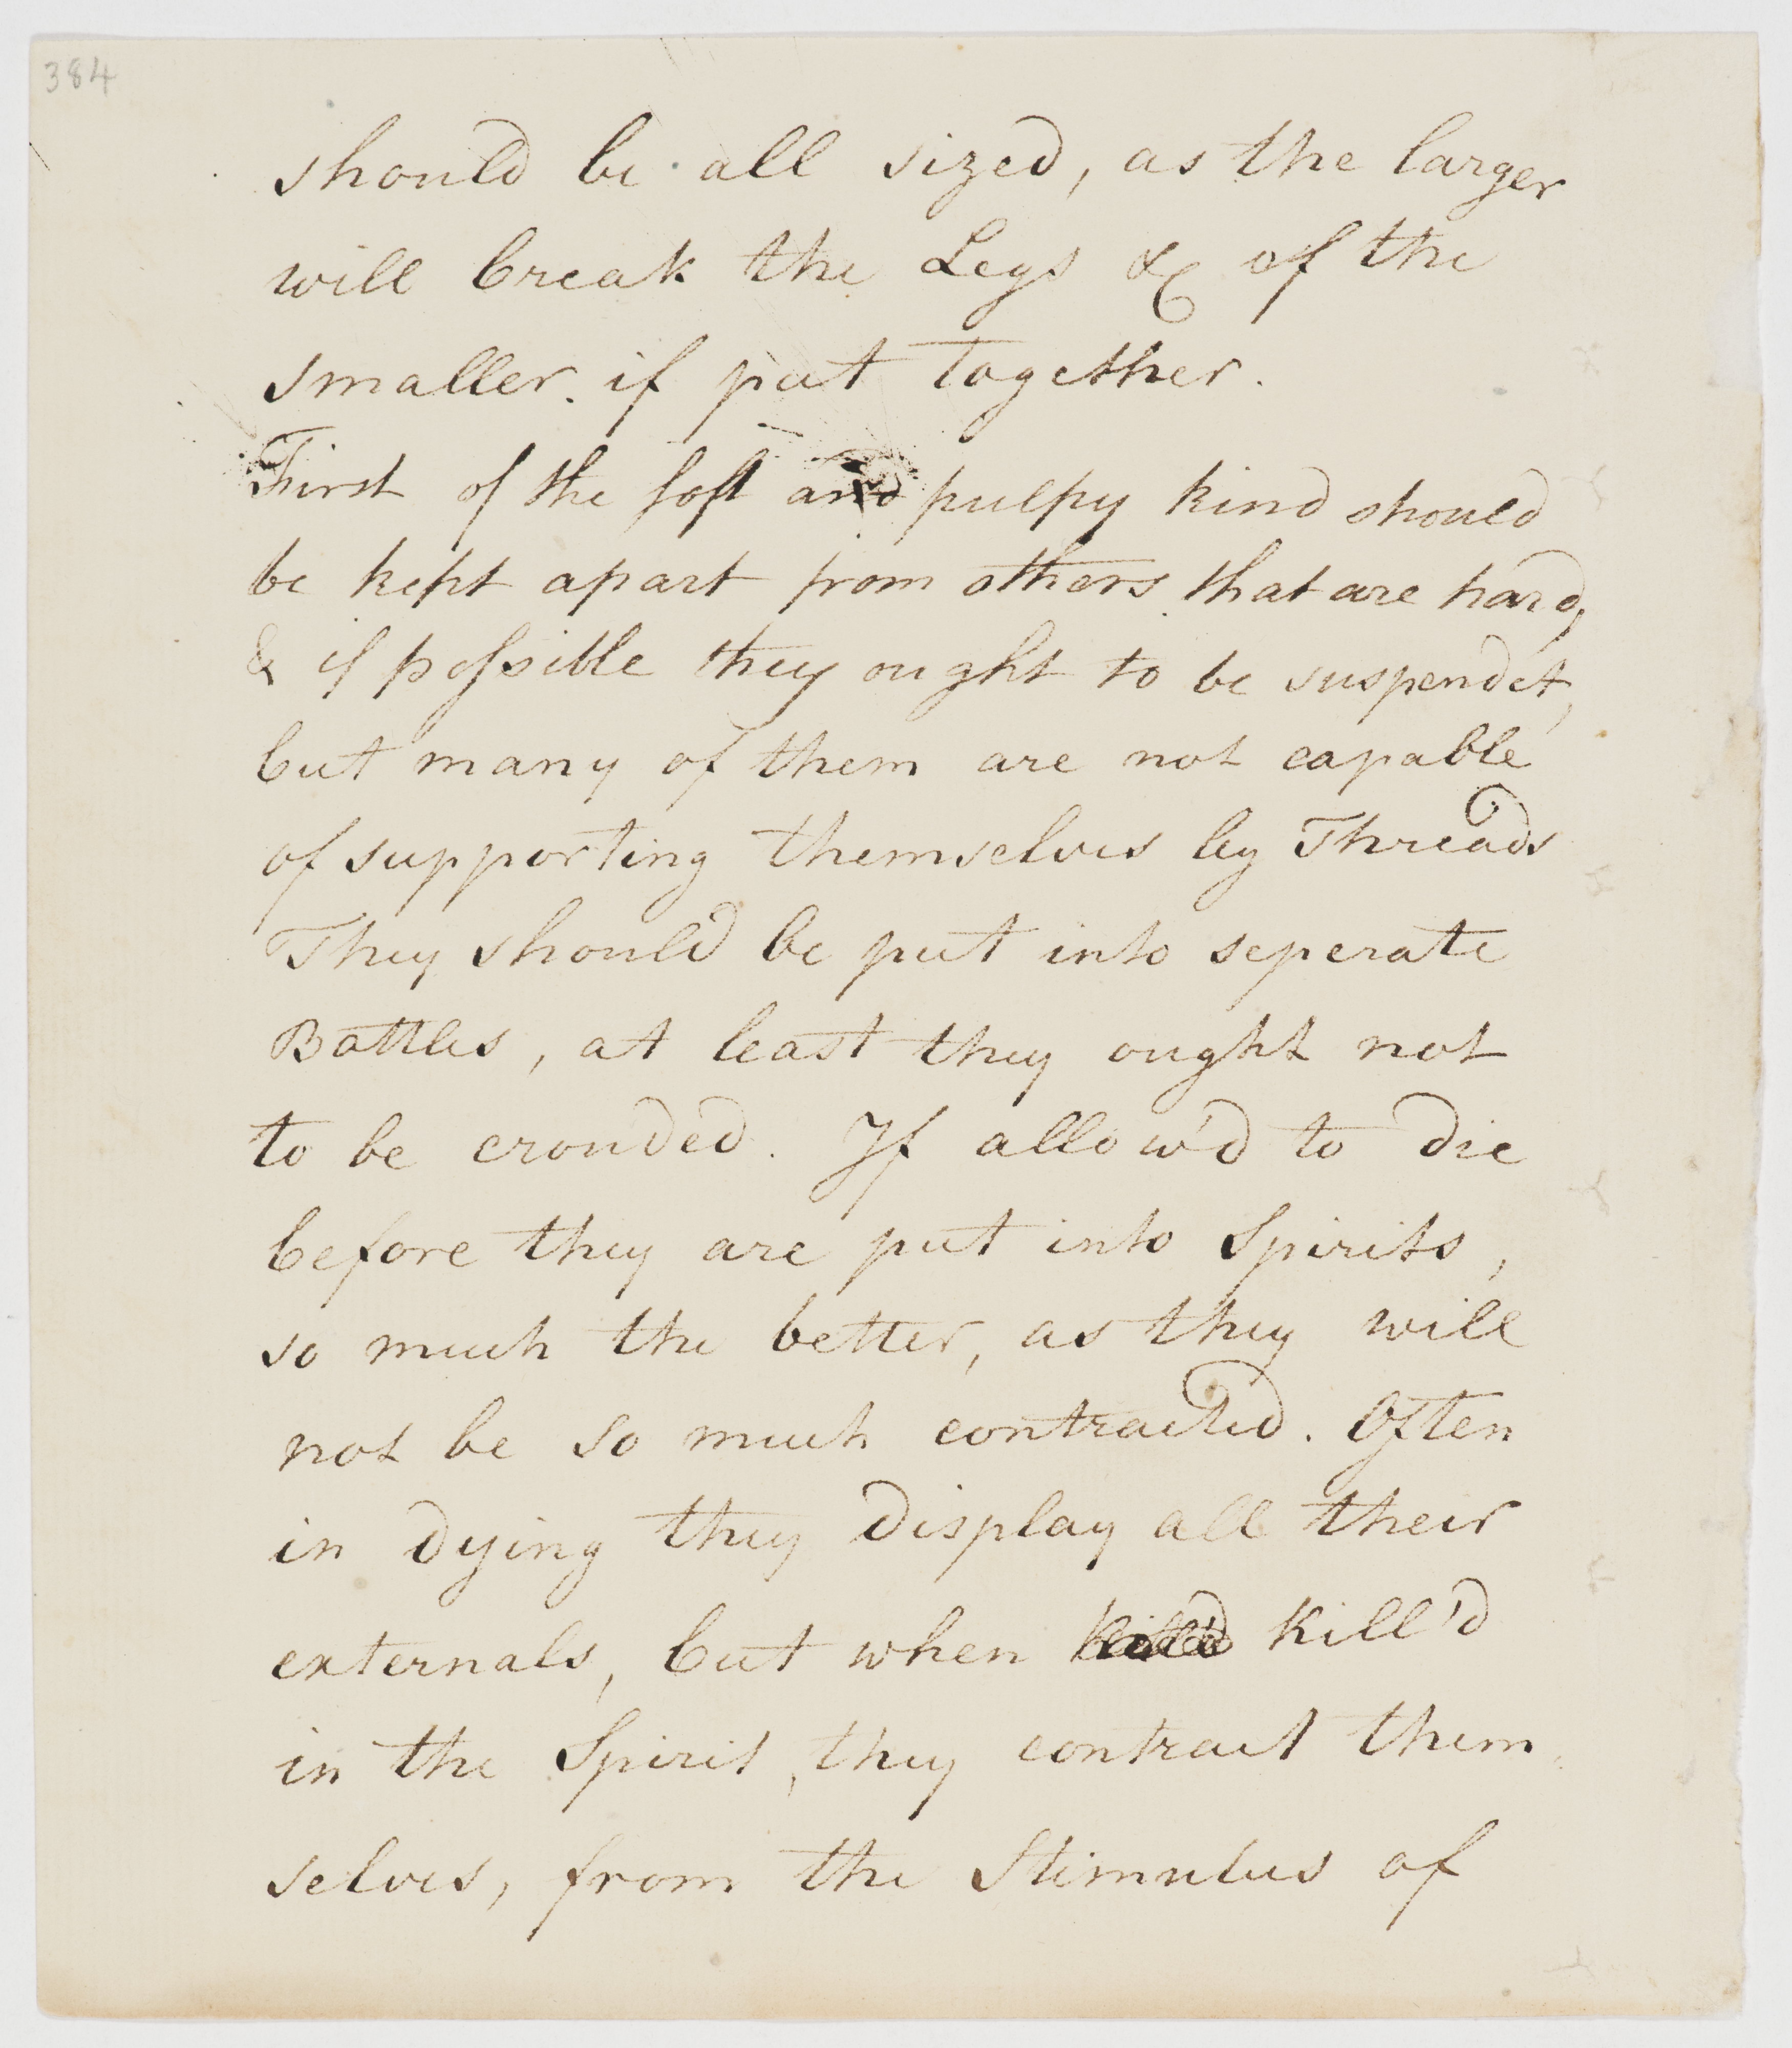 384
should be all sized, as the larger
will break the Legs &c of the
smaller. if put together.
First of the soft and pulpy kind should
be kept apart from others that are hard,
& if possible they ought to be suspendet,
but many of them are not capable
of supporting themselves by Threads
They should be put into seperate
Bottles, at least they ought not
to be crouded. If allow'd to die
before they are put into Spirits,
so much the better, as they will
not be so much contracted. Often
in dying they display all their
externals, but when kill'd
in the Spirit, they contract them
selves, from the Stimulus of